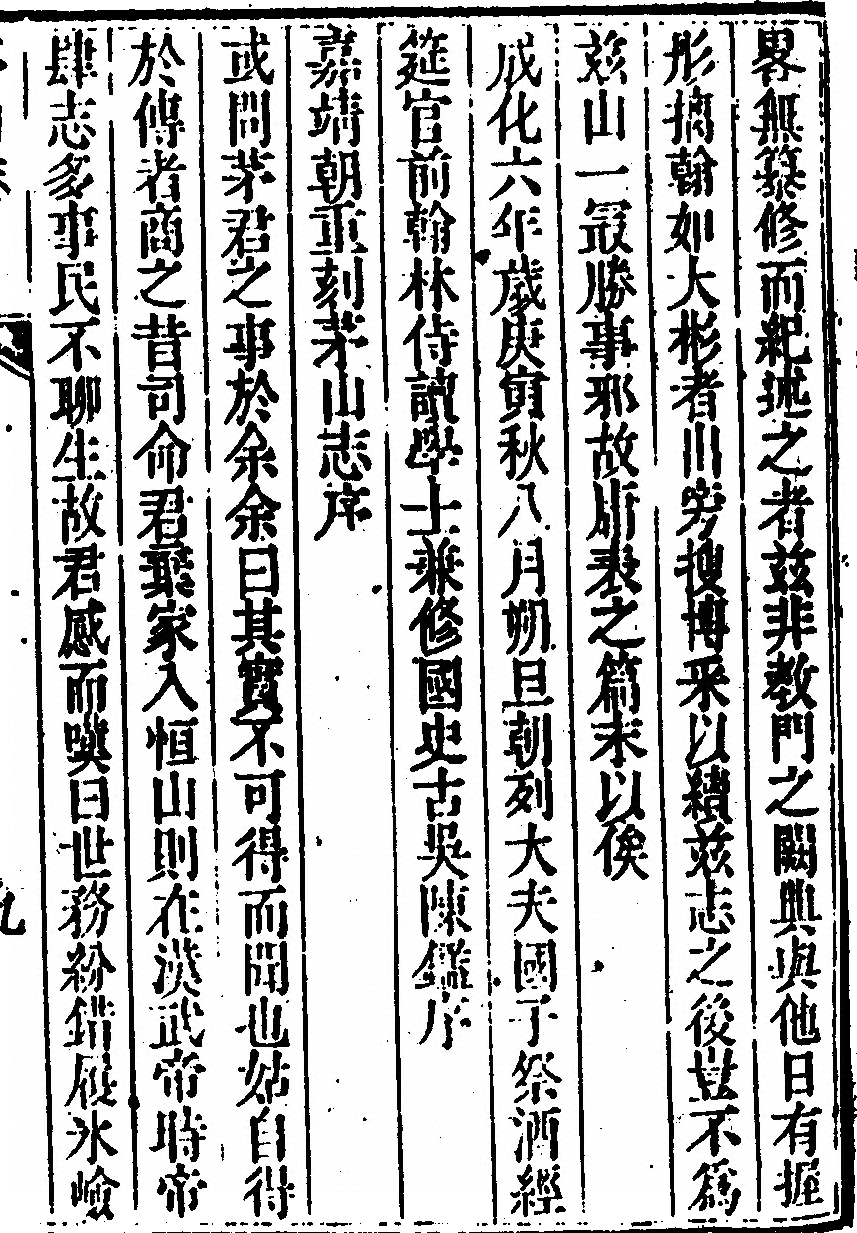 畧無纂修而紀述之者茲非教門之闕典與他日有握
彤摛翰如大彬者出旁搜博采以續茲志之後豈不爲
茲山一㝡勝事邪故庸表之篇末以俟
成化六年歲庚寅秋八月朔旦朝列大夫國子祭酒經
筵官前翰林侍讀學士兼修國史古吳陳鑑序
嘉靖朝重刻茅山志序
或問茅君之事於余余曰其實不可得而聞也姑自得
於傳者商之昔司命君聚家入恒山則在漢武帝時帝
肆志多事民不聊生故君感而嘆曰世務紛錯履氷嶮
九